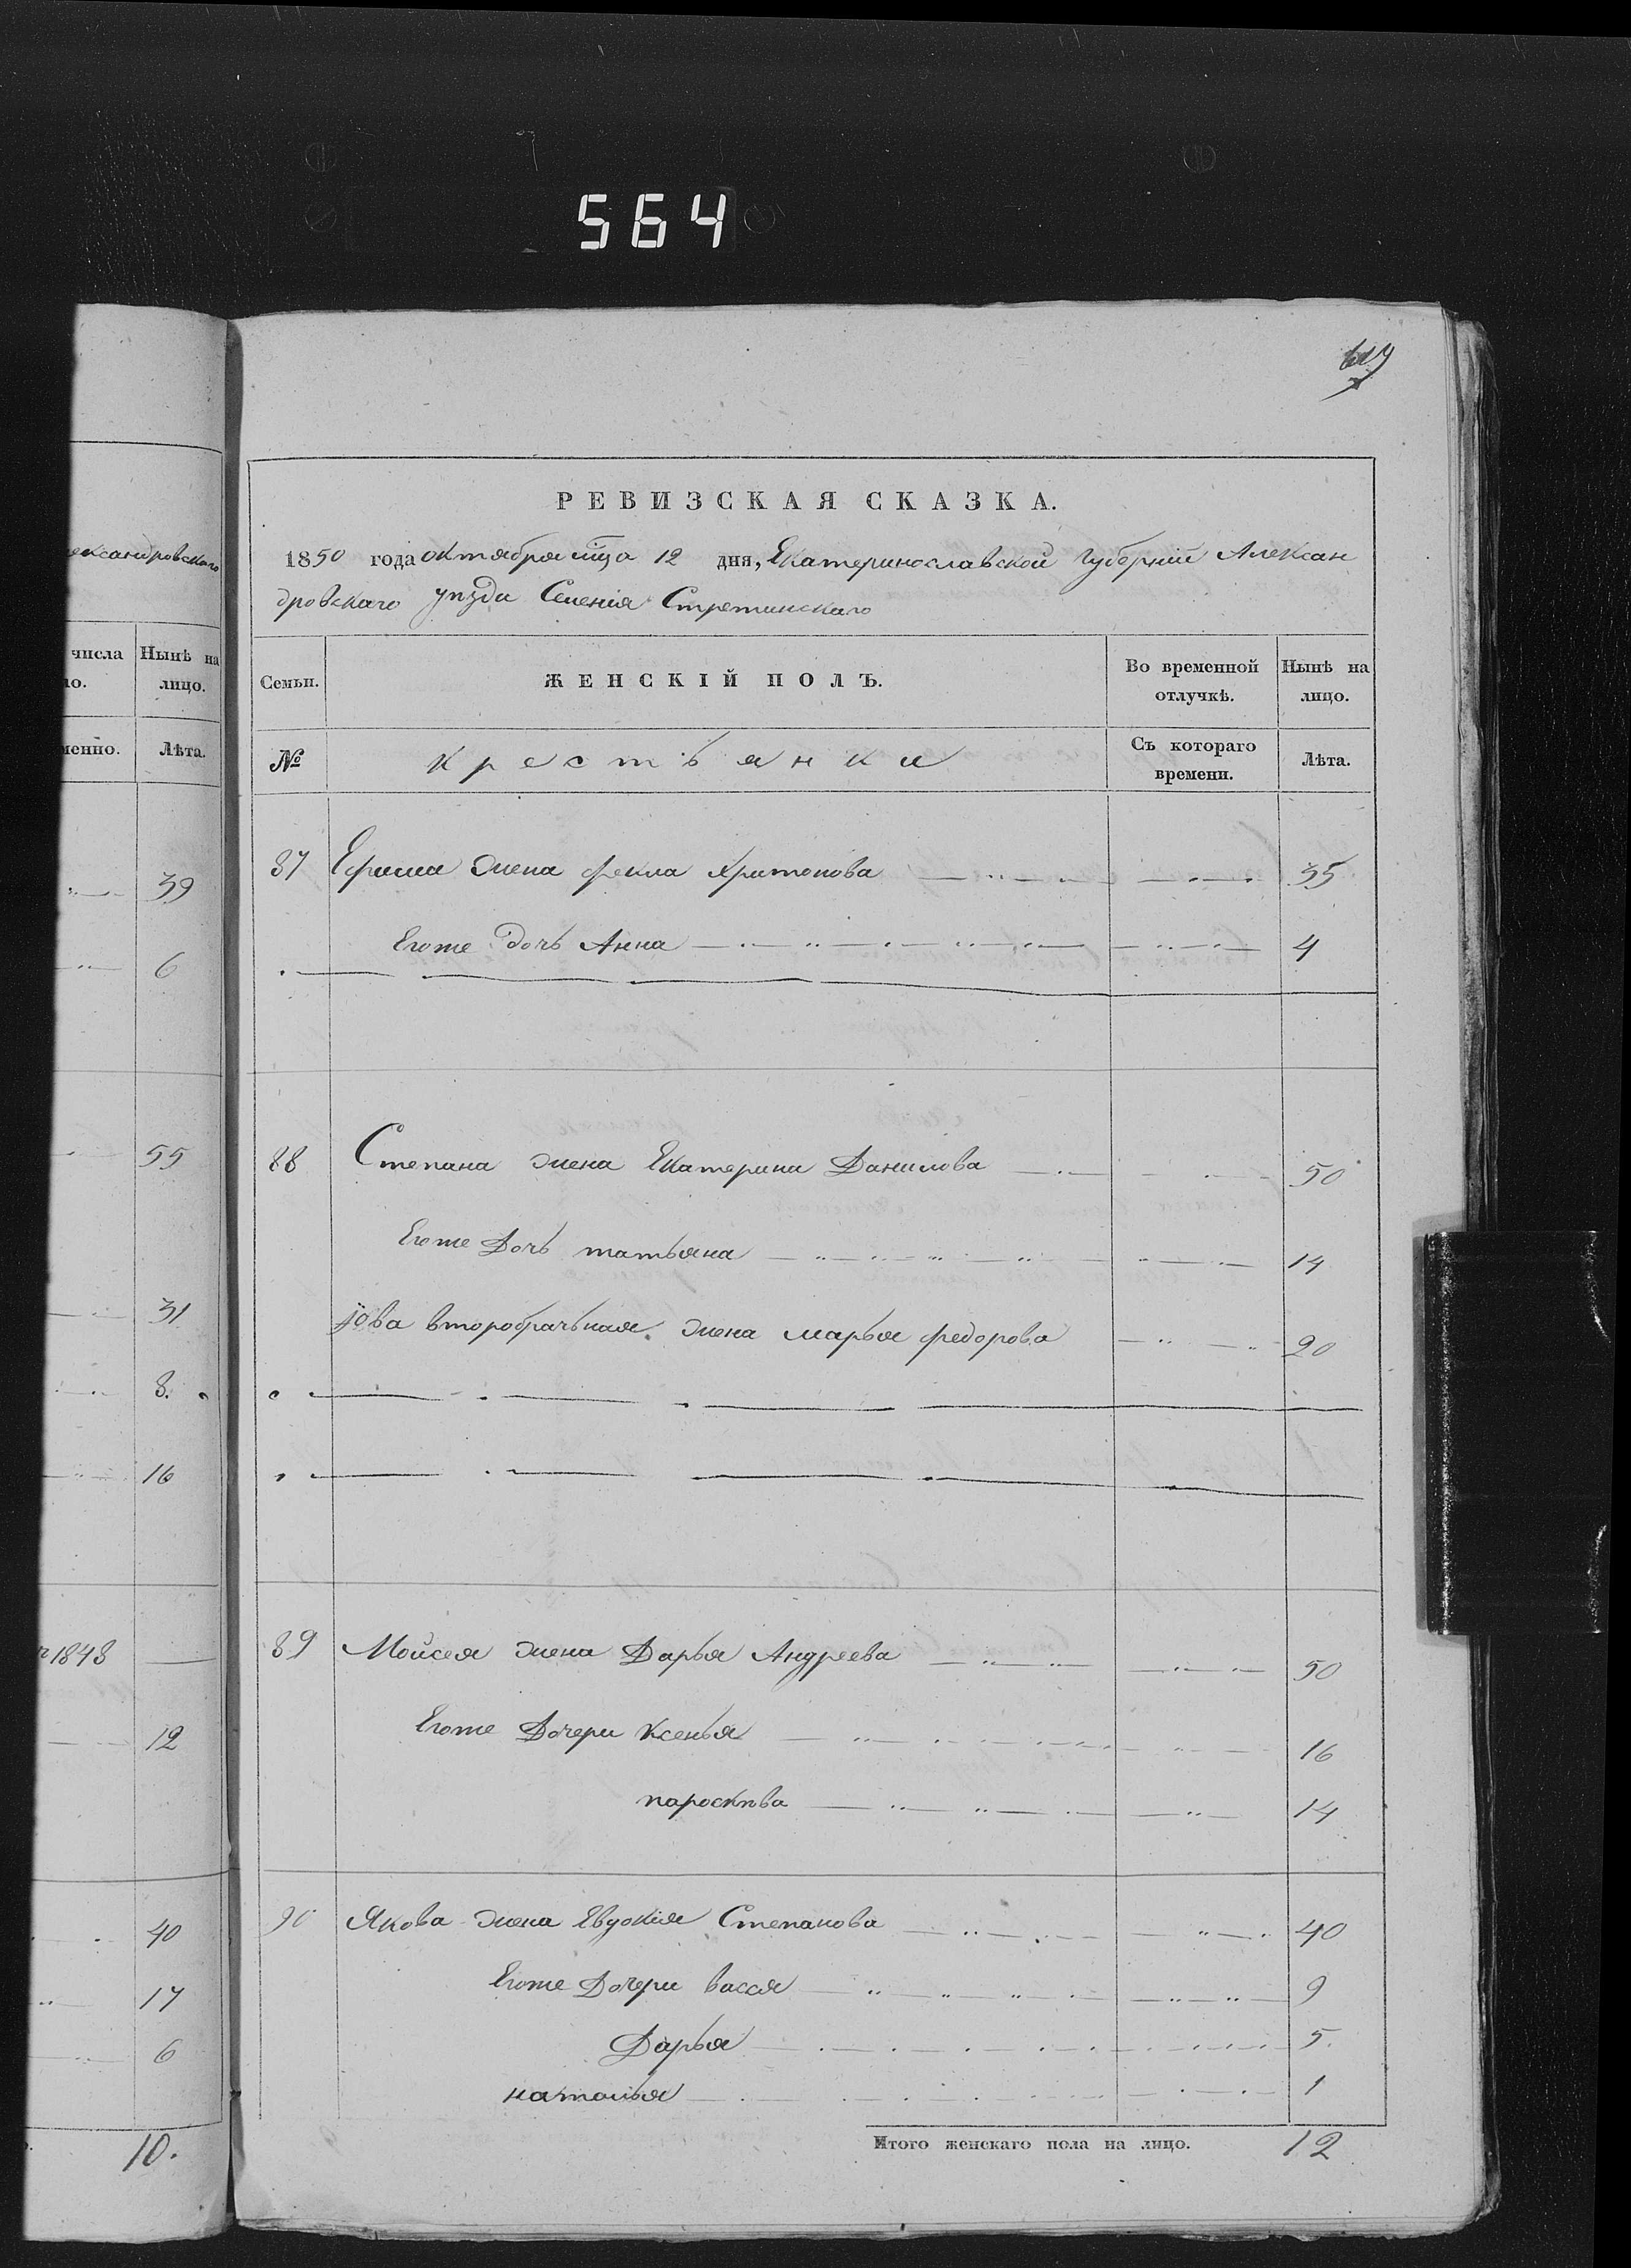 564
619
ександровскаго
числа
Нынѣ на
ло.
лицо.
менно.
Лѣта.
39
6
55
31
8.
16
1848
12
40
17
6
10.
РЕВИЗСКАЯ СКАЗКА.
1850 года октября мца 12 дня, Екатеринославской Губерніи Алексан
дровскаго уезда Селенія Стретинскаго
Семьи.
ЖЕНСКІЙ ПОЛЪ.
Во временной отлучкѣ.
Нынѣ на лицо.
№
крестьянки
Съ котораго времени.
Лѣта.
87 Ефима жена Фекла Христонова 35
Егоже дочь Анна 4
88 Степана жена Екатерина Данилова 50
Егоже Дочь татьяна 14
Іова второбрачьная жена марья федорова 20
89 Мойсея жена Дарья Андреева 50
Егоже Дочери Ксенья 16
парасковa 14
90 Якова жена Евдокія Степанова 40
Егоже Дочери васся 9
Дарья 5
наталья 1
Итого женскаго пола на лицо. 12